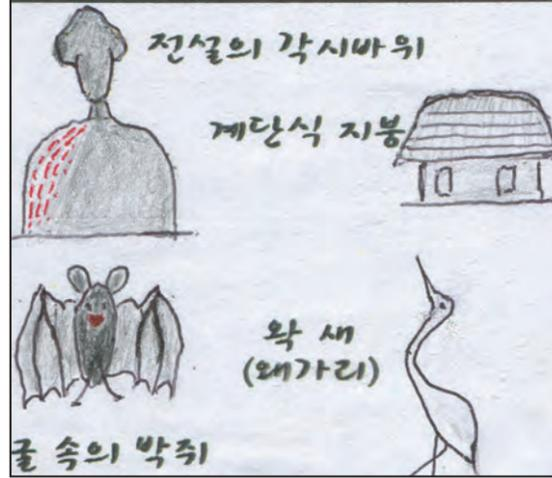 전설의 각시바위
계단식 지붕
왁새
(왜가리)
굴 속의 박쥐